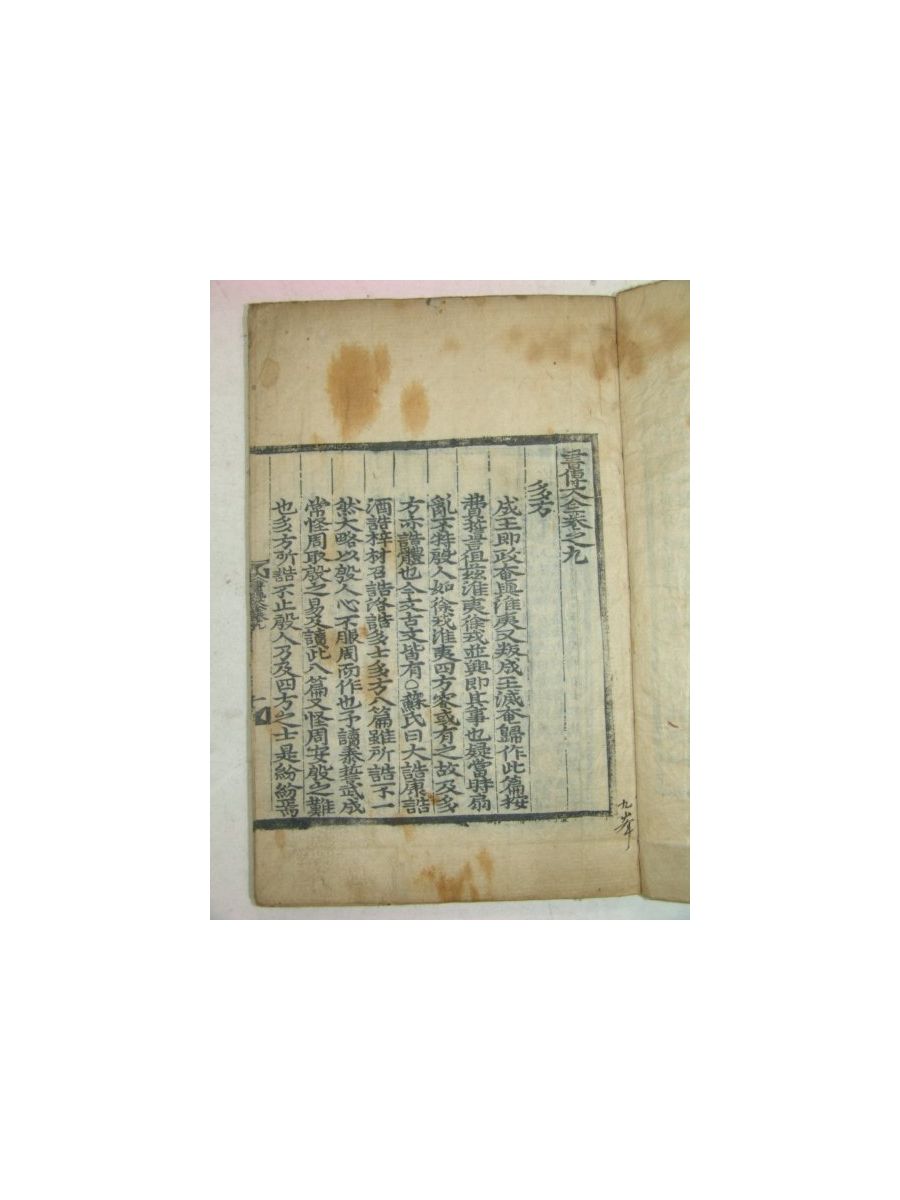 書傳大全卷之九
多方
成王即政奄與淮夷又叛成王滅奄歸作此篇按
費誓言徂玆淮夷徐戎並興即其事也疑當時扇
亂不特殷人如徐戎淮夷四方容或有之故及多
方亦誥體也今文古文皆有○蘇氏曰大誥康誥
酒誥梓材召誥洛誥多士多方八篇雖所誥不一
然大略以殷人心不服周而作也予讀泰誓武成
常怪周取殷之易及讀此八篇又怪周安殷之難
也多方所誥不止殷人乃及四方之士是紛紛焉
九峯